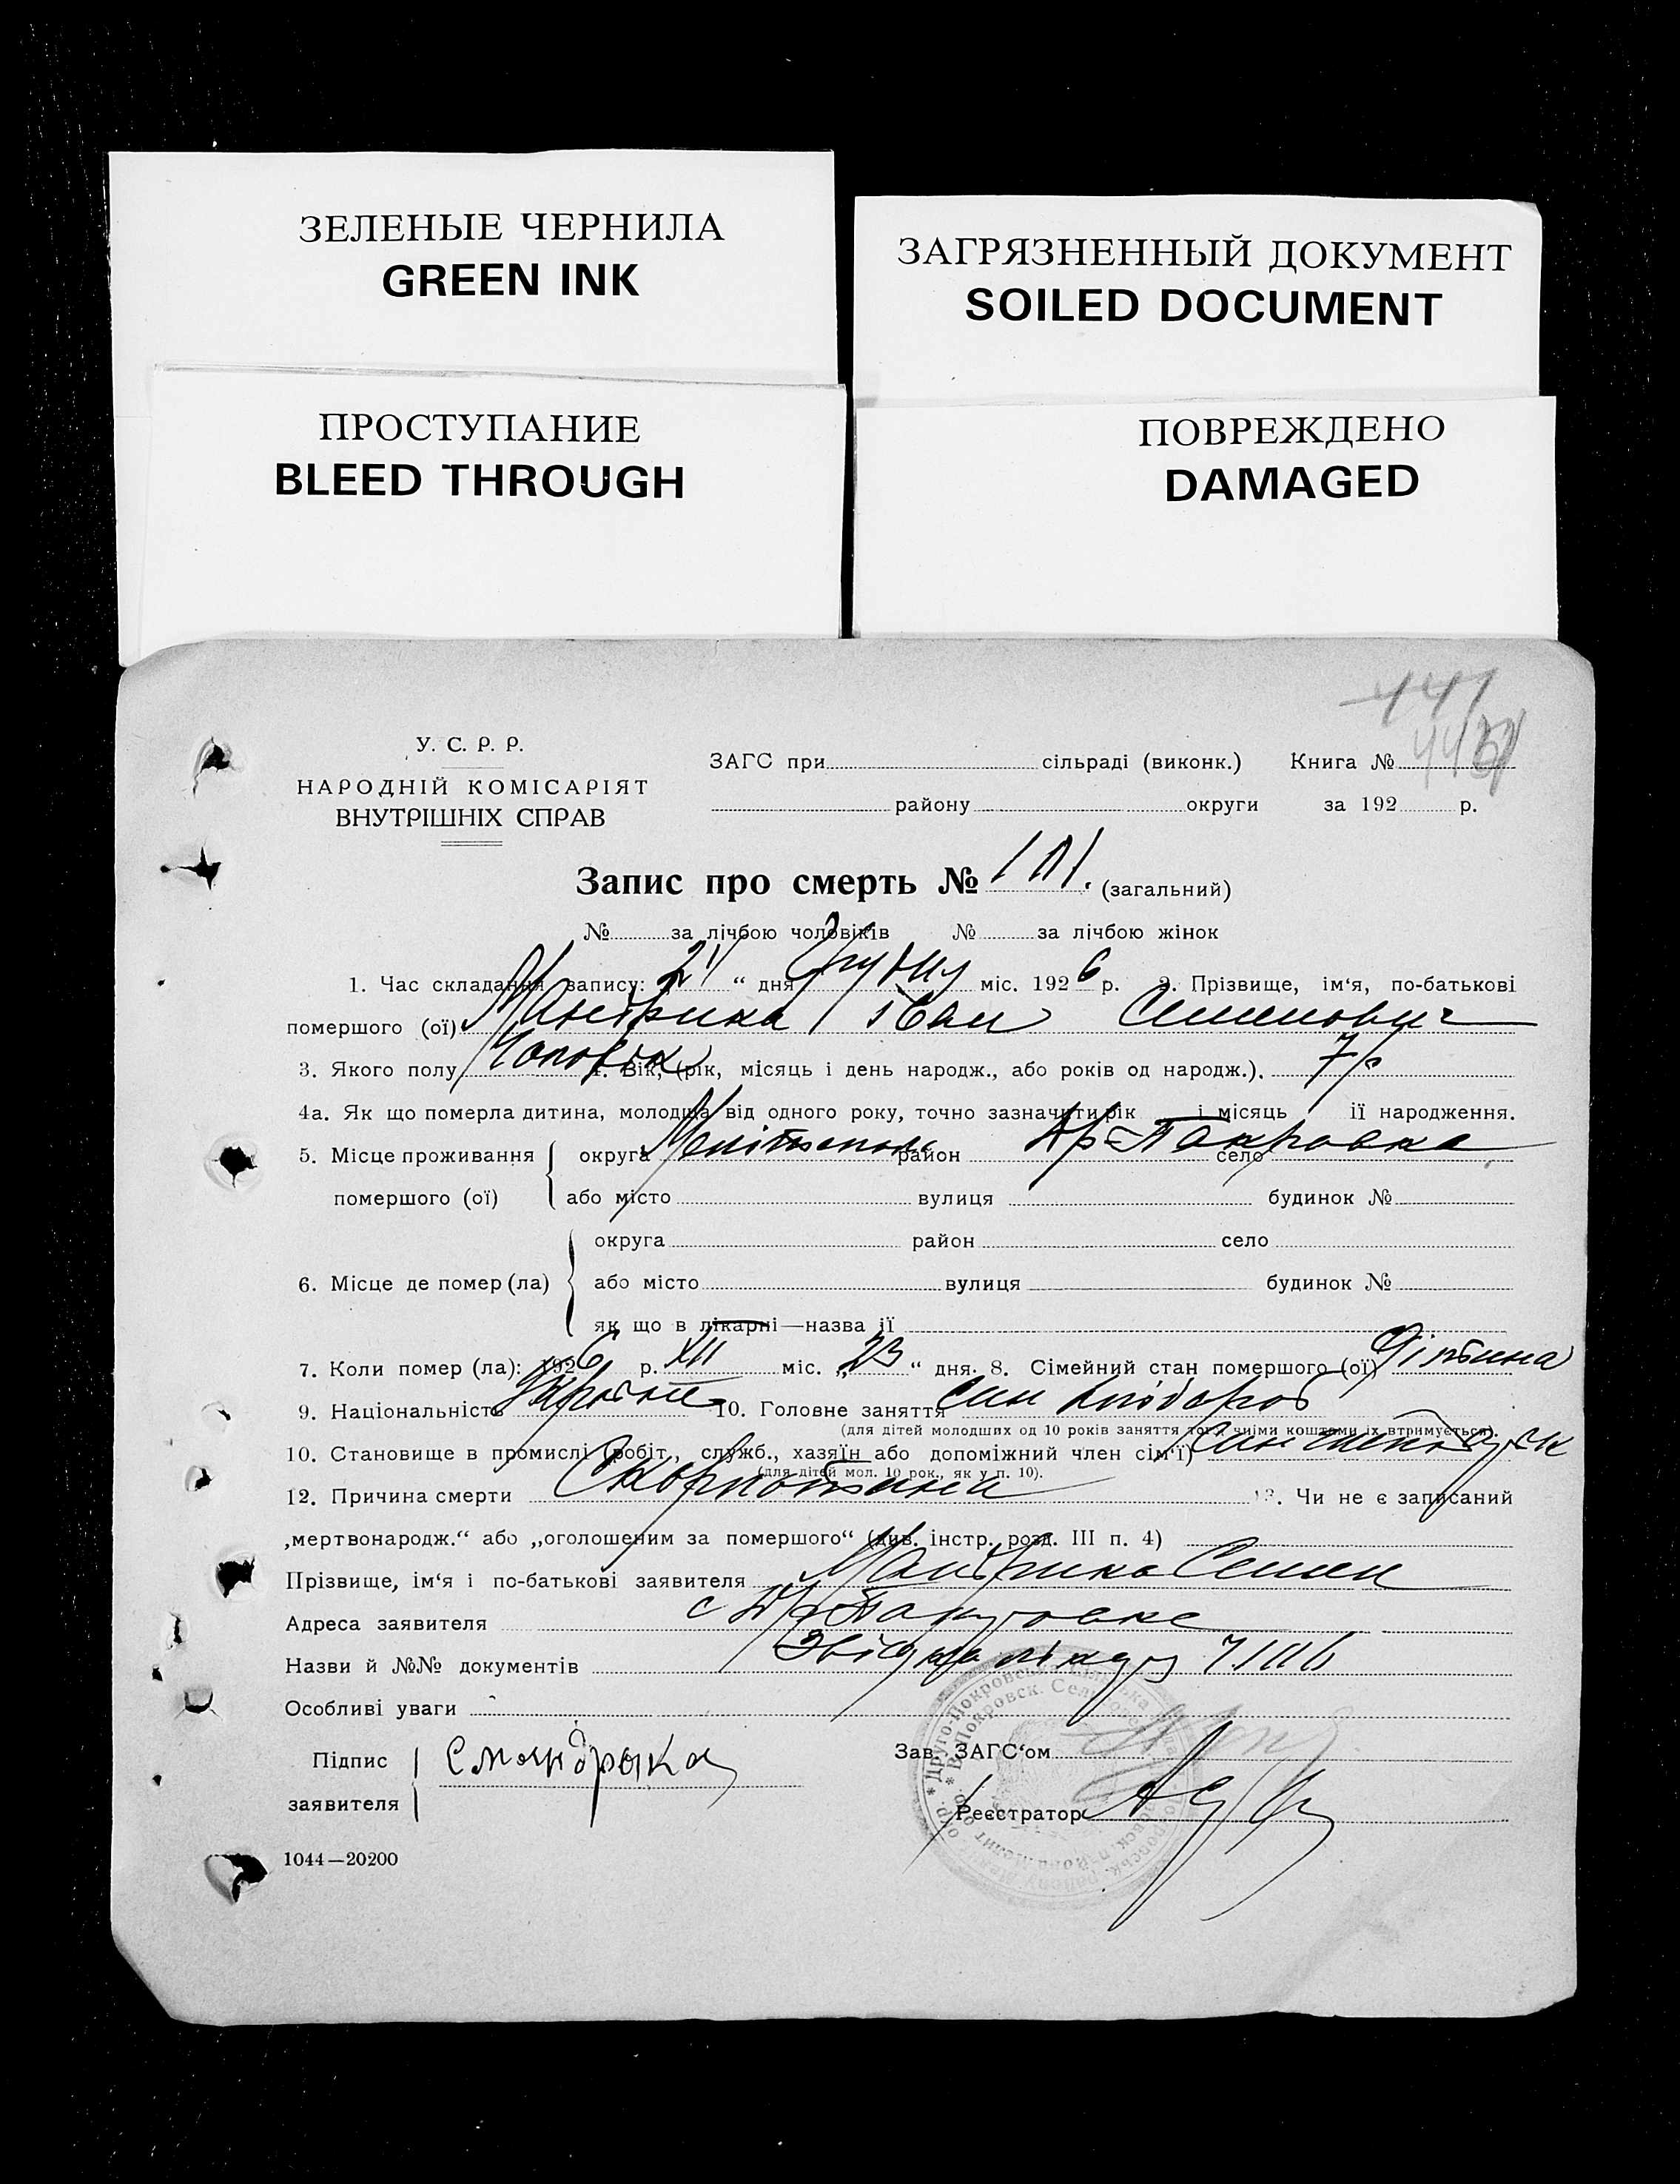 ЗЕЛЕНЫЕ ЧЕРНИЛА
GREEN INK
ЗАГРЯЗНЕННЫЙ ДОКУМЕНТ
SOILED DOCUMENT
ПРОСТУПАНИЕ
BLEED THROUGH
ПОВРЕЖДЕНО
DAMAGED
441
У. С. Р. Р.
НАРОДНІЙ КОМІСАРІЯТ
ВНУТРІШНІХ СПРАВ
ЗАГС при сільраді (виконк.) Книга №
району округи за 192 р.
Запис про смерть № 101. (загальний)
№ за лічбою чоловіків № за лічбою жінок
1. Час складання запису: 24 “ дня Грудня міс. 1926 р. 2. Прізвище, ім‘я, по-батькові
помершого (ої) Мандрика Іван Семенович
3. Якого полу Чоловік 4. Вік, (рік, місяць і день народж., або років од народж.). 7 р
4а. Як що померла дитина, молодща від одного року, точно зазначити рік і місяць її народження.
5. Місце проживання округа Мелітополь район село Др-Покровка
помершого (ої) або місто вулиця будинок №
округа район село
6. Місце де помер (ла) або місто вулиця будинок №
як що в лікарні—назва її
7. Коли помер (ла): 1926 р. XII міс. „23“ дня. 8. Сімейний стан помершого (ої) Дітина
9. Національність 10. Головне заняття син хлібороб
(для дітей молодших од 10 років заняття того, чиїми коштами їх втримується).
10. Становище в промислі (робіт., служб., хазяїн або допоміжний член сім‘ї) син
(для дітей мол. 10 рок., як у п. 10).
12. Причина смерти Скорлатина 13. Чи не є записаний
„мертвонародж.“ або „оголошеним за помершого“ (див. інстр. розд. III п. 4)
Прізвище, ім‘я і по-батькові заявителя Мандрика Семен
Адреса заявителя с Др Покровке
Назви й №№ документів
Особливі уваги
Підпис
заявителя
С мандрыка
Зав. ЗАГС‘ом
Реєстратор
1044—20200